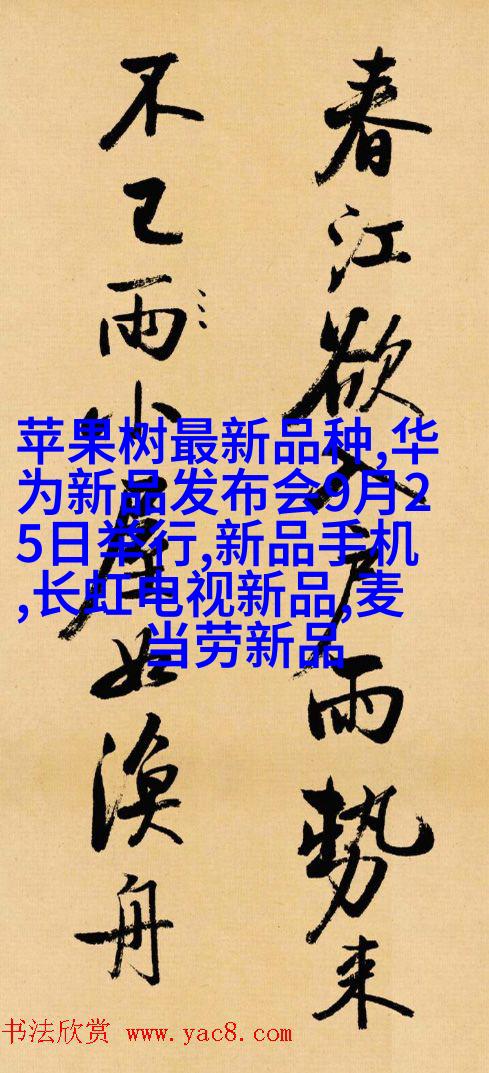 春江欲入户雨勢来
不已雨小屋如漁舟
苹果树最新品种,华
为新品发布会9月2
5日举行,新品手机
,长虹电视新品,麦
当劳新品
书法欣赏 www.yac8.com